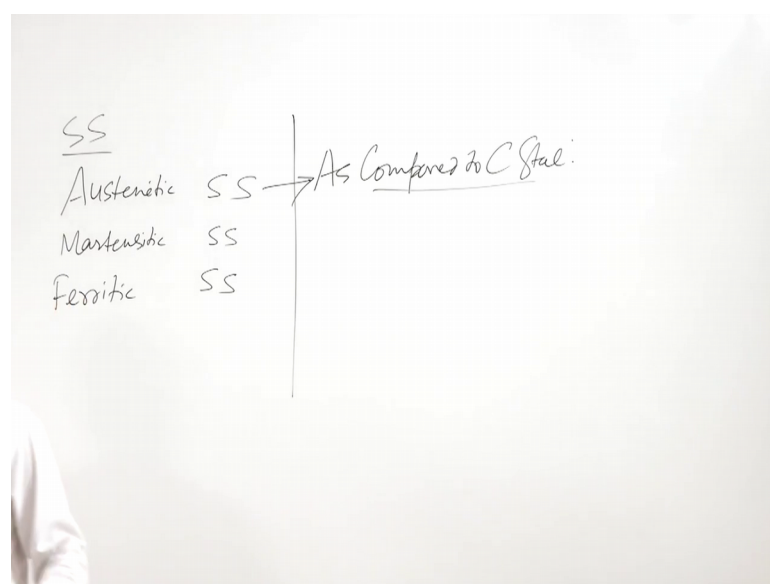 SS
Austenitic SS → As Compared to C Steel:
Martensitic SS
Ferritic SS